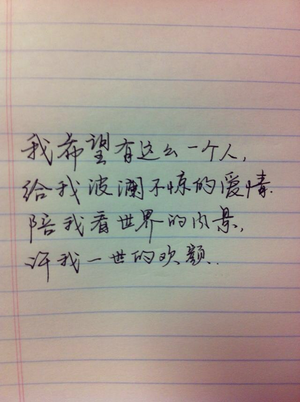 我希望有这么一个人，
给我波澜不惊的爱情.
陪我看世界的风景，
许我一世的欢颜.